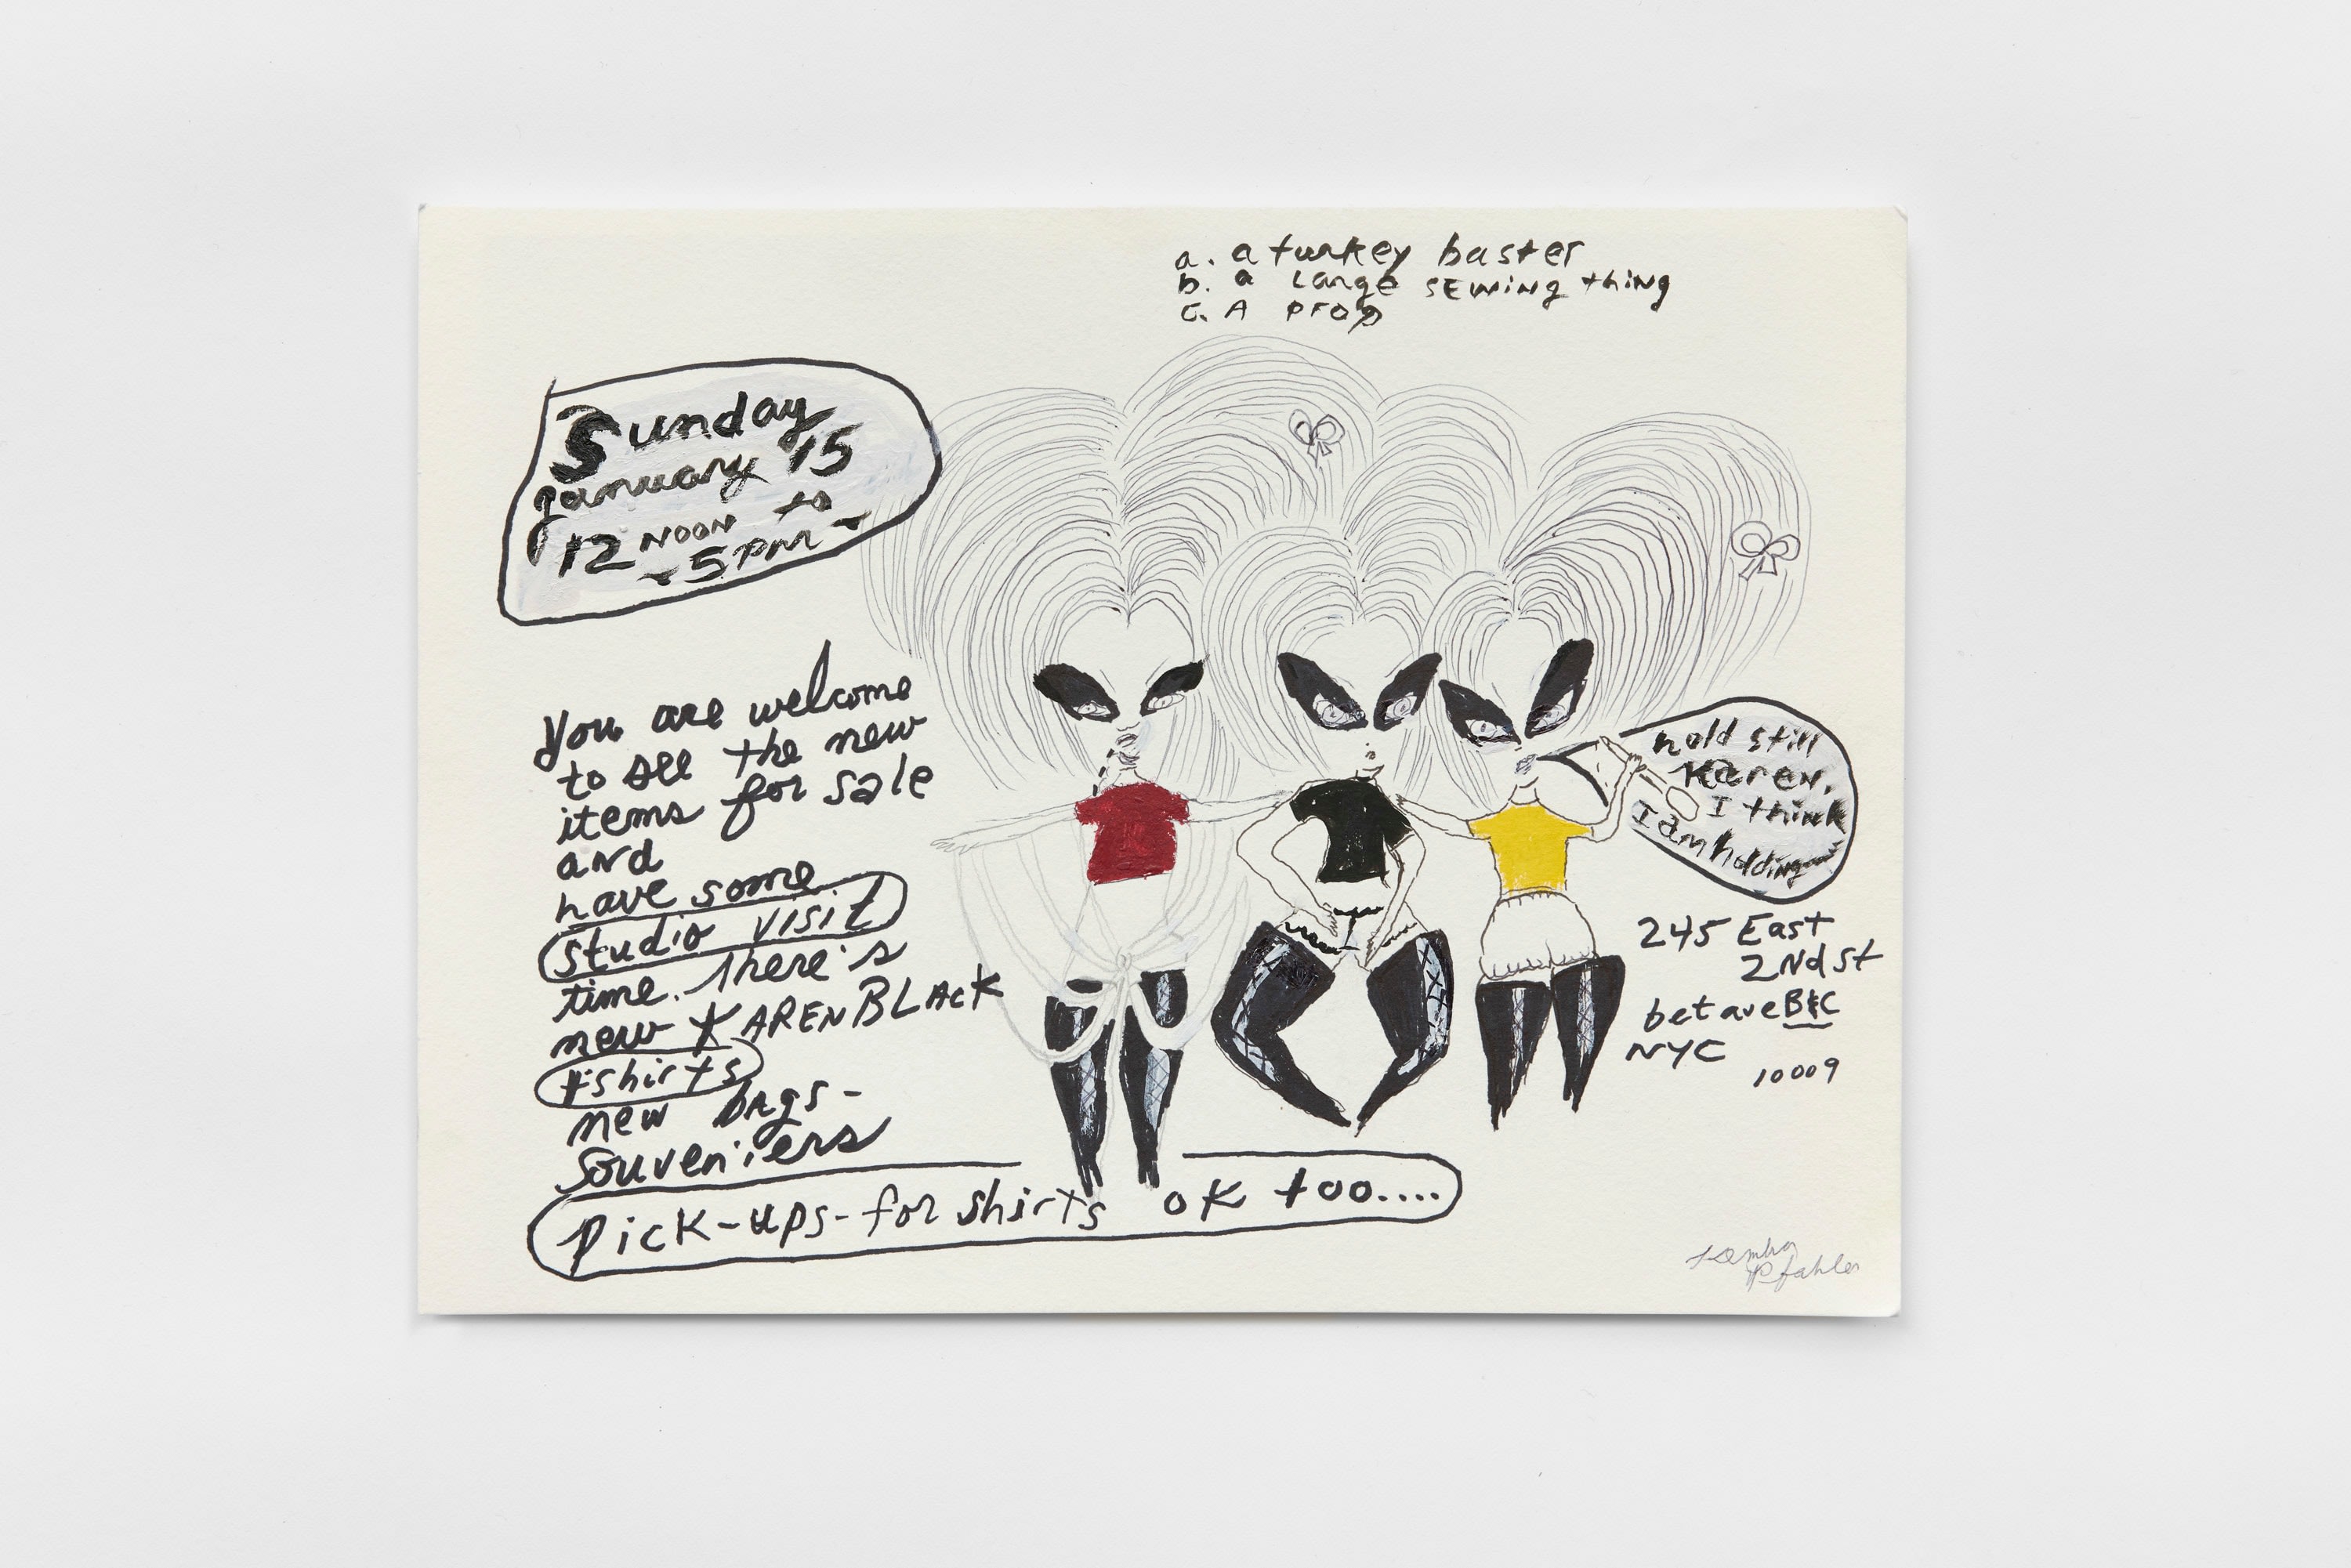 a. a turkey baster
b. a Large SEWiNg thiNg
c. A prop
Sunday
January 15
12 NOON to
5 PM
You are welcome
to see the new
items for sale
and
have some
studio visit
time. There's
new KAREN BLAcK
tshirts
new bAgs-
souveniers
Pick-ups-for shirts ok too....
hold still
Karen,
I think
I am holding
245 East
2Nd St
bet ave B&C
NYC
10009
Kembra
Pfahler